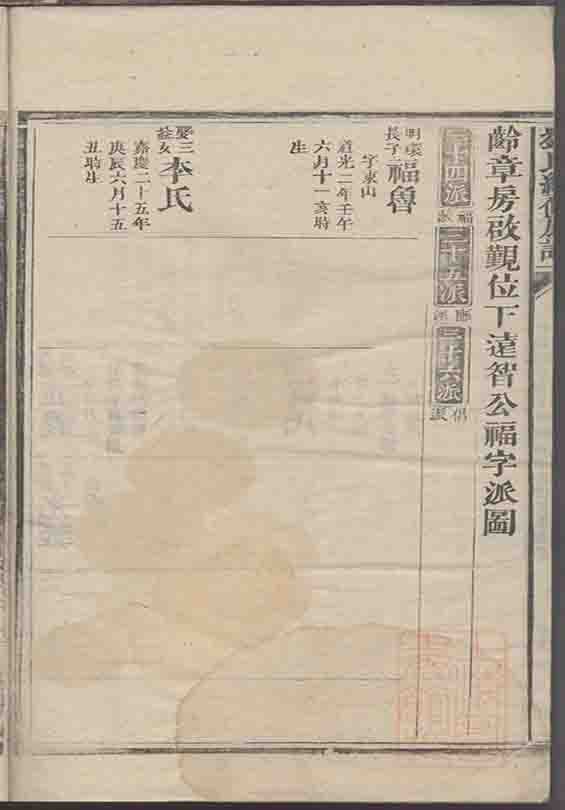 齡章房啟觀位下達智公福字派圖
三十四派
福派
三十五派
應派
三十六派
明㻞長子福魯
字東山
道光二年壬午
六月十一亥時
生
娶三益女李氏
嘉慶二十五年
庚辰六月十五
丑時生